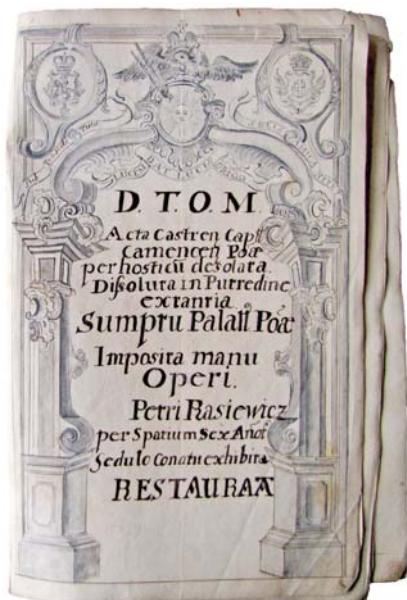 D. T. O. M.
Acta Castren Captl
Camencen Poæ
per hosticū desolata.
Dissoluta in Putredine
extantia
Sumptu Palatt Poæ
Imposita manu
Operi.
Petri Rasiewicz
per Spatium Sex Añor
Sedulo Conatu exhibita
RESTAURAA